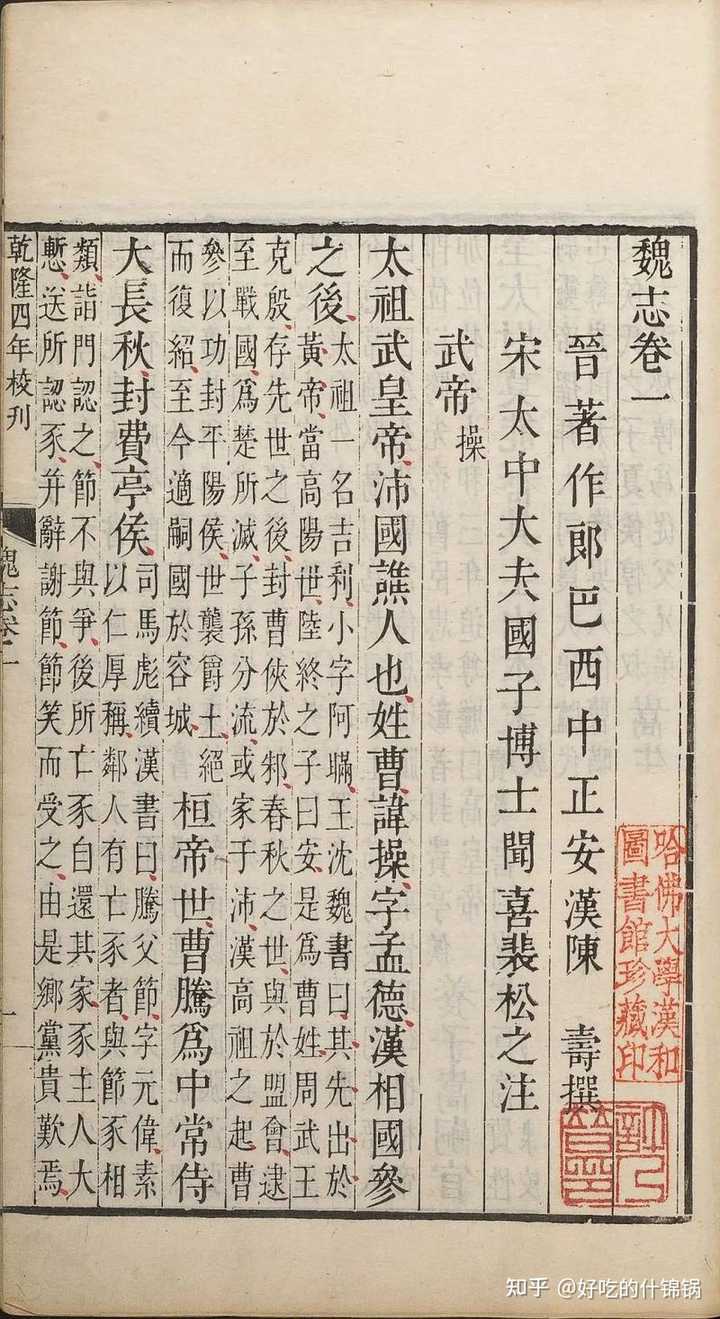 魏志卷一
晉著作郎巴西中正安漢陳 壽撰
宋太中大夫國子博士聞喜裴松之注
武帝操
太祖武皇帝沛國譙人也姓曹諱操字孟德漢相國參
之後太祖一名吉利小字阿瞞王沈魏書曰其先出於
黃帝當高陽世陸終之子曰安是爲曹姓周武王
克殷存先世之後封曹俠於邾春秋之世與於盟會逮
至戰國爲楚所滅子孫分流或家于沛漢高祖之起曹
參以功封平陽侯世襲爵土絕
而復紹至今適嗣國於容城
桓帝世曹騰爲中常侍
大長秋封費亭侯司馬彪續漢書曰騰父節字元偉素
以仁厚稱鄰人有亡豕者與節豕相
類詣門認之節不與爭後所亡豕自還其家豕主人大
慙送所認豕并辭謝節節笑而受之由是鄉黨貴歎焉
乾隆四年校刊
魏志卷一
一
哈佛大學漢和
圖書館珍藏印
知乎 @好吃的什锦锅